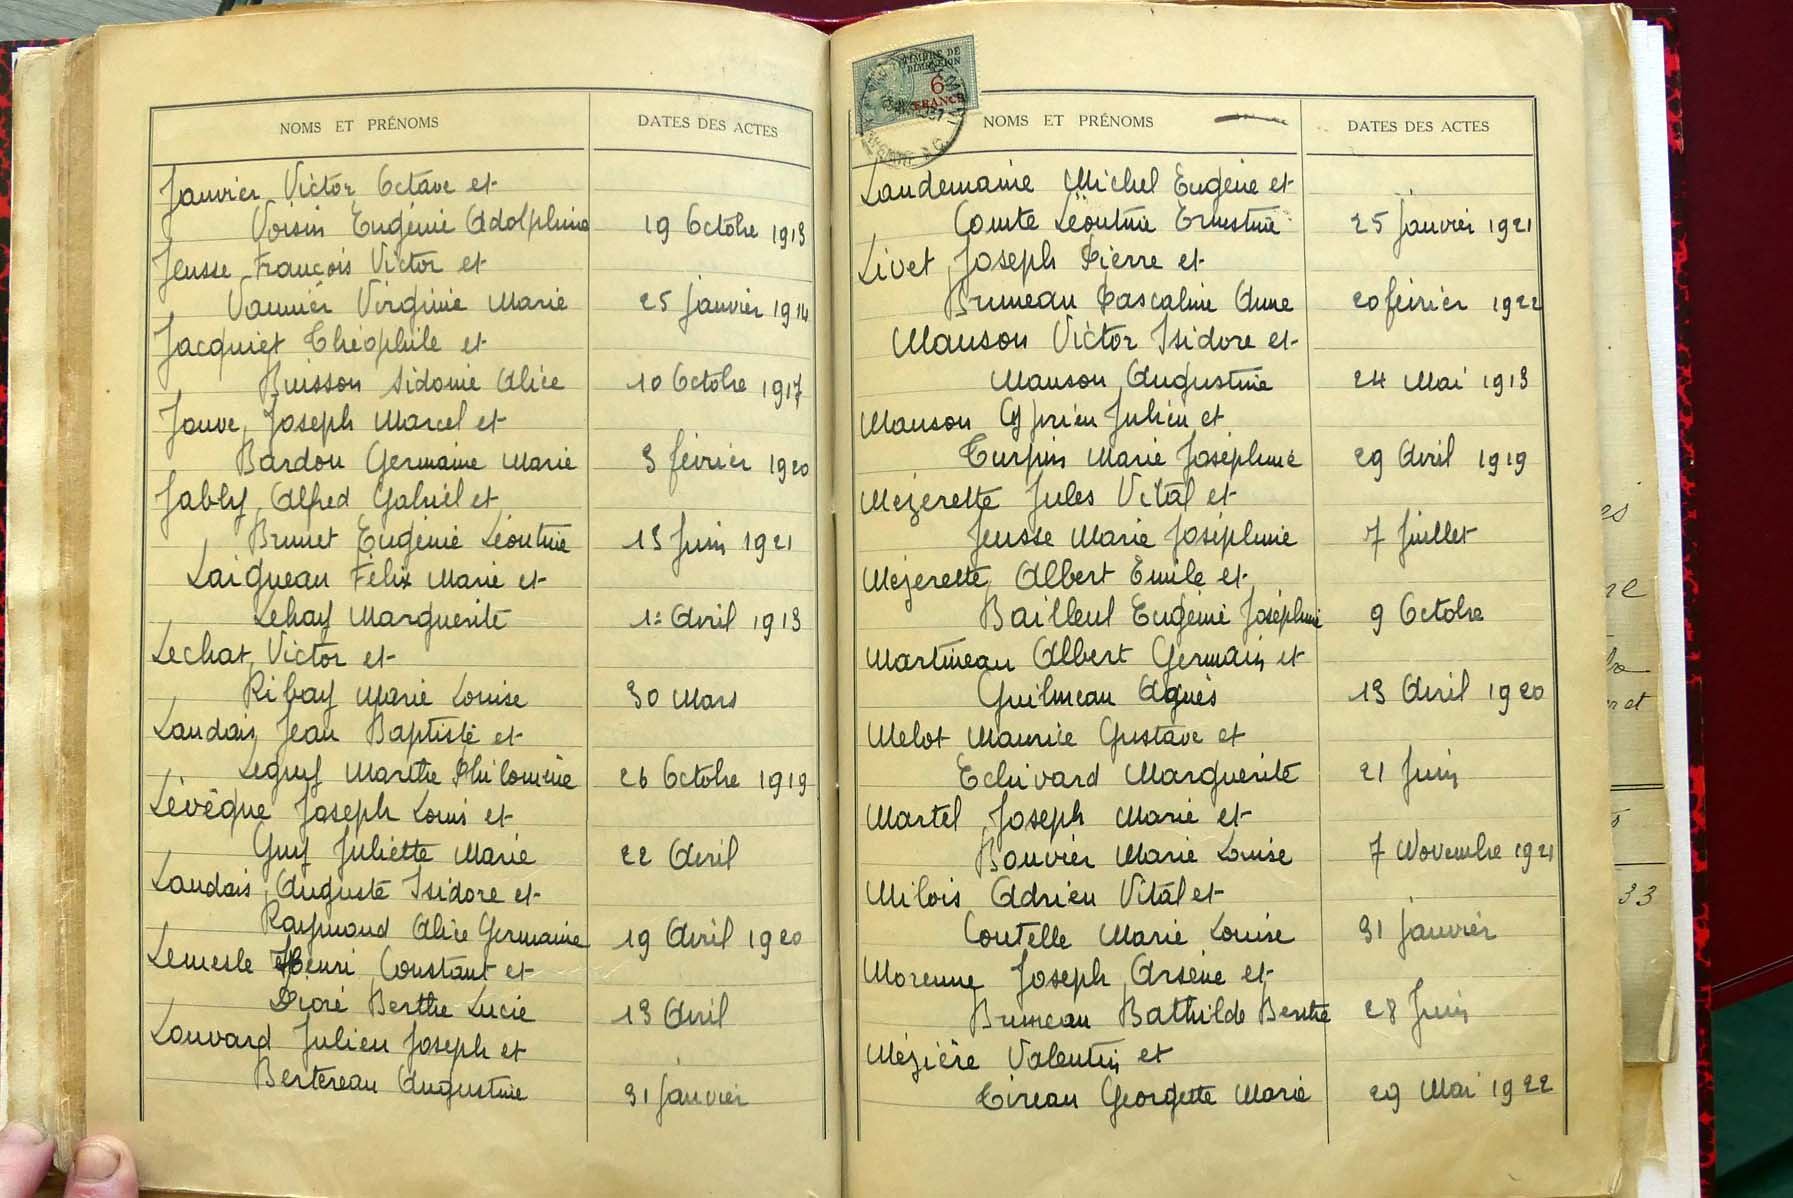 NOMS ET PRÉNOMS
DATES DES ACTES
Janvier Victor Octave et
Voisin Eugénie Adolphine 19 Octobre 1913
Jeusse François Victor et
Vannier Virginie Marie 25 janvier 1914
Jacquiet Théophile et
Buisson Sidonie Alice 10 Octobre 1917
Jouve Joseph Marcel et
Bardou Germaine Marie 3 février 1920
Jably Alfred Gabriel et
Brunet Eugénie Léontine 13 Juin 1921
Laigneau Félix Marie et
Lehay Marguerite 1er Avril 1913
Lechat Victor et
Ribay Marie Louise 30 Mars
Landais Jean Baptiste et
Leguy Marthe Philomène 26 Octobre 1919
Lévêque Joseph Louis et
Guy Juliette Marie 22 Avril
Landais Auguste Isidore et
Raymond Alice Germaine 19 Avril 1920
Lemesle Henri Constant et
Dioré Berthe Lucie 13 Avril
Louvard Julien Joseph et
Bertereau Augustine 31 janvier
TIMBRE DE
DIMENSION
6
FRANCS
NOMS ET PRÉNOMS
DATES DES ACTES
Landemaine Michel Eugène et
Comte Léontine Ernestine 25 janvier 1921
Livet Joseph Pierre et
Bruneau Pascaline Anne 20 février 1922
Manson Victor Isidore et
Manson Augustine 24 Mai 1913
Manson Cyprien Julien et
Turpin Marie Joséphine 29 Avril 1919
Mézerette Jules Vital et
Jeusse Marie Joséphine 7 Juillet
Mézerette Albert Emile et
Bailleul Eugénie Joséphine 9 Octobre
Martineau Albert Germain et
Guilmeau Agnès 13 Avril 1920
Melot Maurice Gustave et
Echivard Marguerite 21 Juin
Martel Joseph Marie et
Bouvier Marie Louise 7 Novembre 1921
Milois Adrien Vital et
Coutelle Marie Louise 31 janvier
Morenne Joseph Arsène et
Bruneau Bathilde Berthe 28 Juin
Mézière Valentin et
Tireau Georgette Marie 29 Mai 1922
33